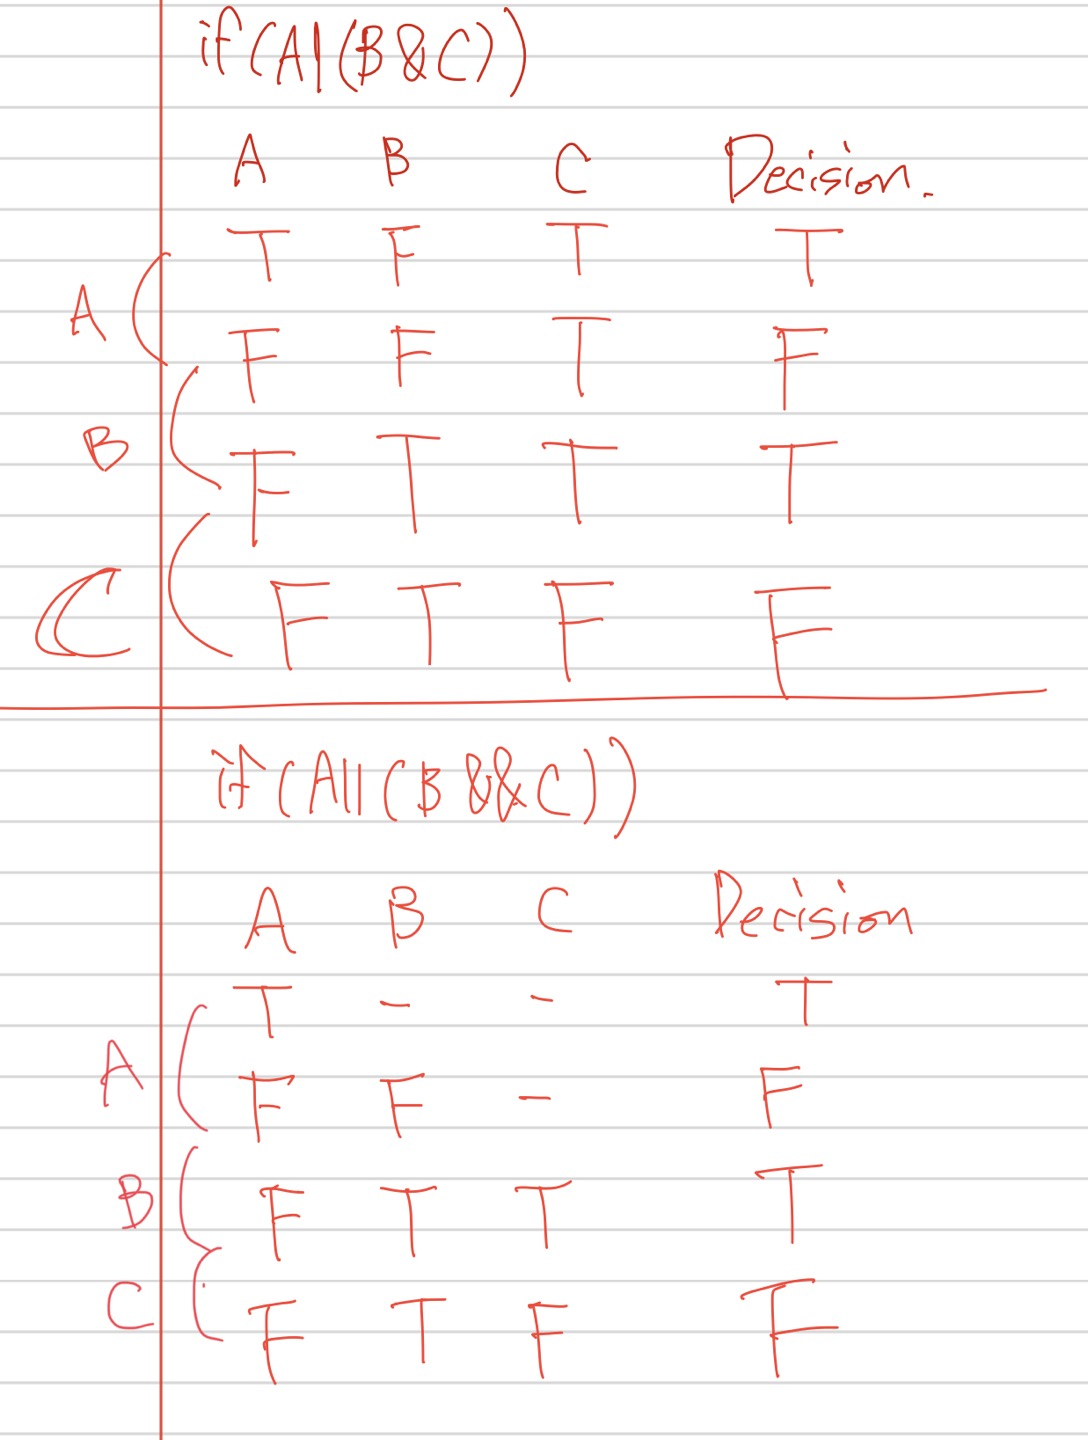 if(A|(B&C))
A B C Decision.
T F T T
A
F F T F
B
F T T T
C
F T F F
if(A||(B&&C))
A B C Decision
T - - T
A
F F - F
B
F T T T
C
F T F F